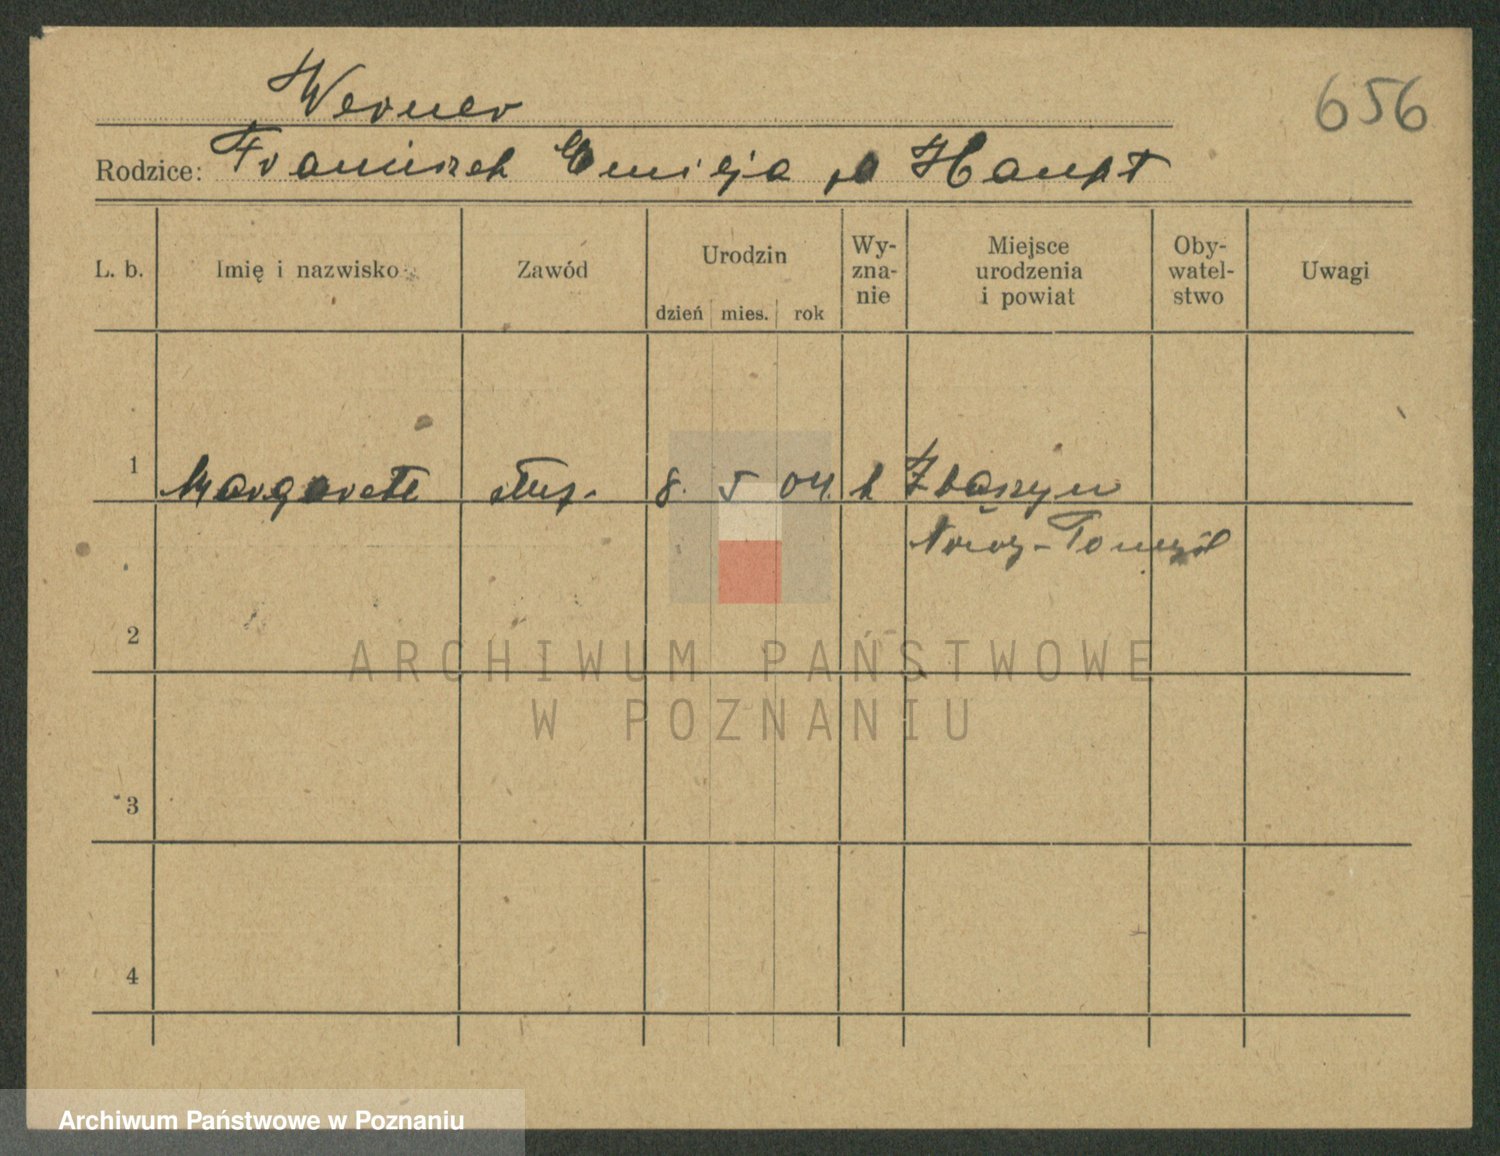 Werner
656
Rodzice: Franciszek Emilja d Haupt
L. b. Imię i nazwisko Zawód Urodzin dzień mies. rok Wy-zna-nie Miejsce urodzenia i powiat Oby-watel-stwo Uwagi
1 Margarete służ. 8. 5 04. k Zbąszyn
Nowy-Tomyśl
2
ARCHIWUM PAŃSTWOWE
W POZNANIU
3
4
Archiwum Państwowe w Poznaniu